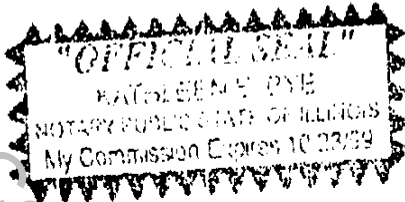 "OFFICIAL SEAL"
KATHLEEN
NOTARY PUBLIC STATE OF ILLINOIS
My Commission Expires 10/23/99